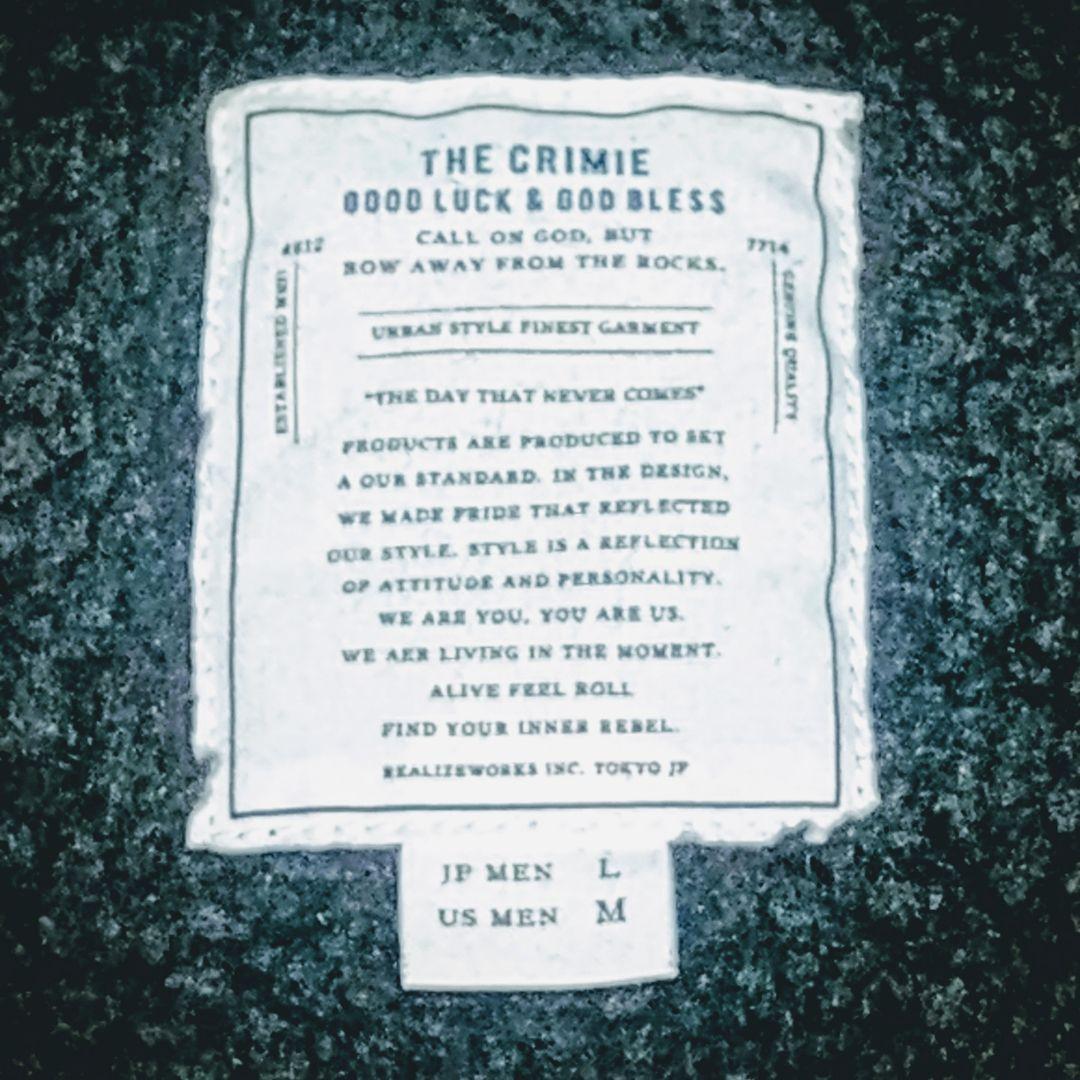 THE CRIMIE
GOOD LUCK & GOD BLESS
CALL ON GOD, BUT
ROW AWAY FROM THE ROCKS.
7714
ESTABLISHED
GENUINE QUALITY
URBAN STYLE FINEST GARMENT
"THE DAY THAT NEVER COMES"
PRODUCTS ARE PRODUCED TO SET
A OUR STANDARD. IN THE DESIGN,
WE MADE PRIDE THAT REFLECTED
OUR STYLE. STYLE IS A REFLECTION
OF ATTITUDE AND PERSONALITY.
WE ARE YOU, YOU ARE US.
WE AER LIVING IN THE MOMENT.
ALIVE FEEL ROLL
FIND YOUR INNER REBEL.
REALIZEWORKS INC. TOKYO JP
JP MEN L
US MEN M